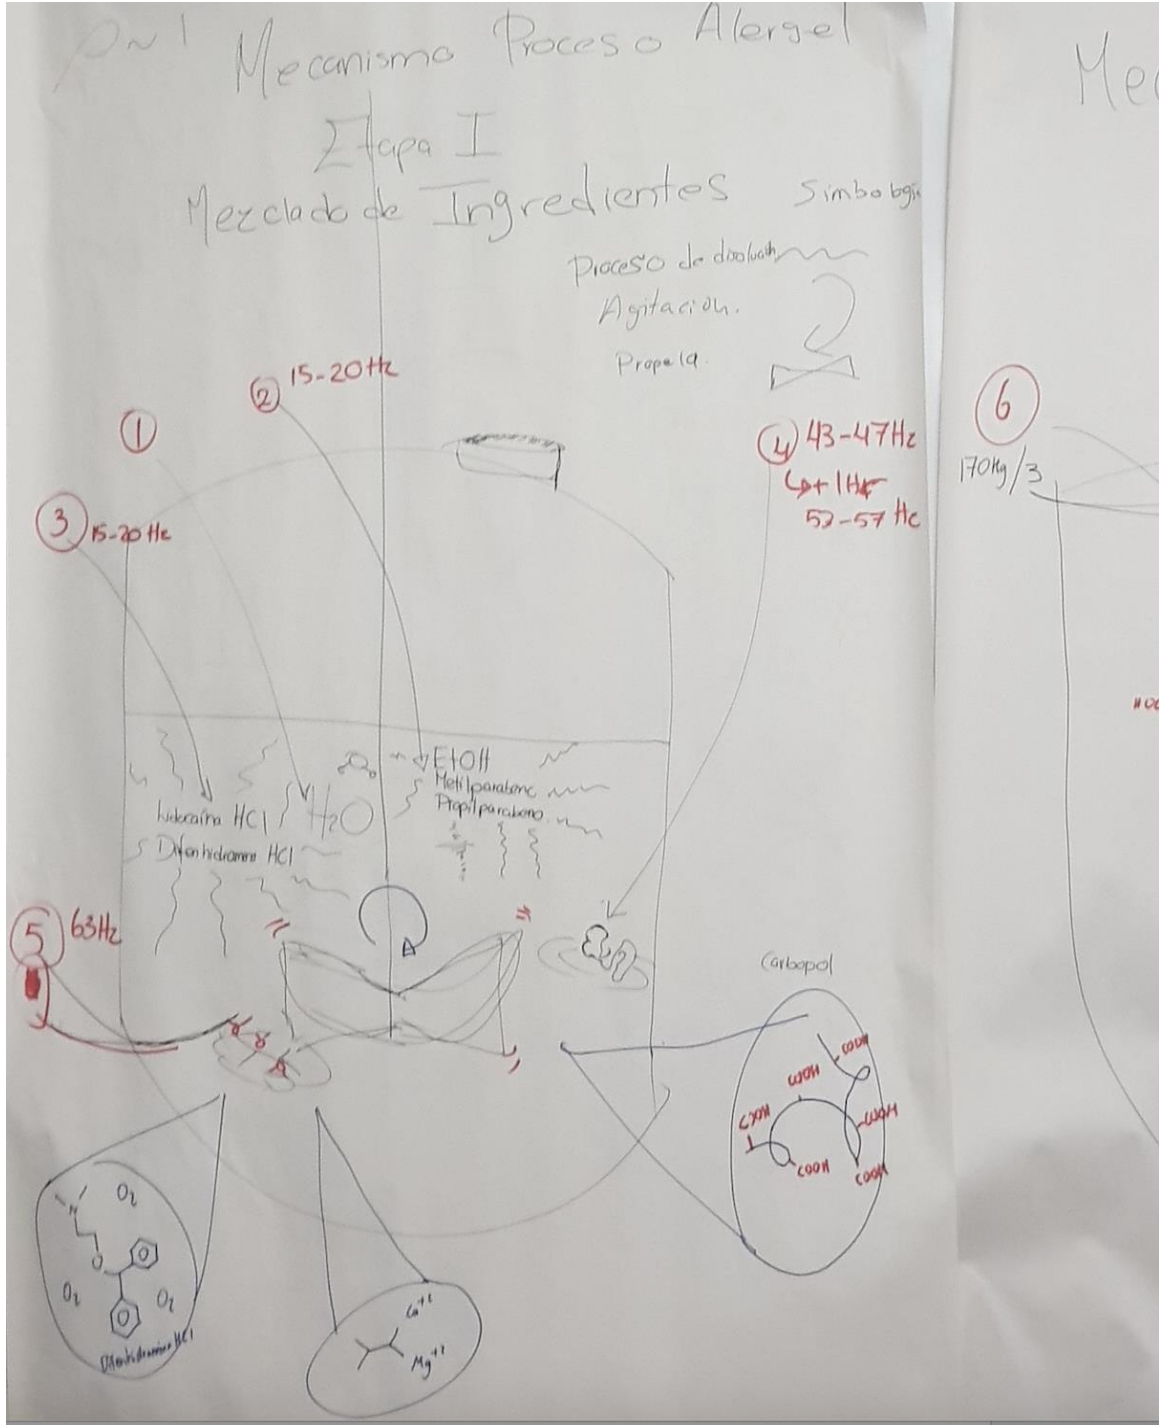 Mecanismo Proceso Alergel
Etapa I
Mezclado de Ingredientes
Simbología
Proceso de disolución
Agitación.
Propela.
① 
② 15-20Hz
③ 15-20 Hz
④ 43-47Hz
↳+1Hz
52-57 Hz
⑥
170Kg/3
Mec
EtOH
Metilparabeno
Propilparabeno.
lidocaína HCl
H2O
Difenhidramina HCl
⑤ 63Hz
Carbopol
COOH
COOH
COOH
COOH
COOH
COOH
N
O
O2
O2
O2
Difenhidramina HCl
Ca+2
Mg+2